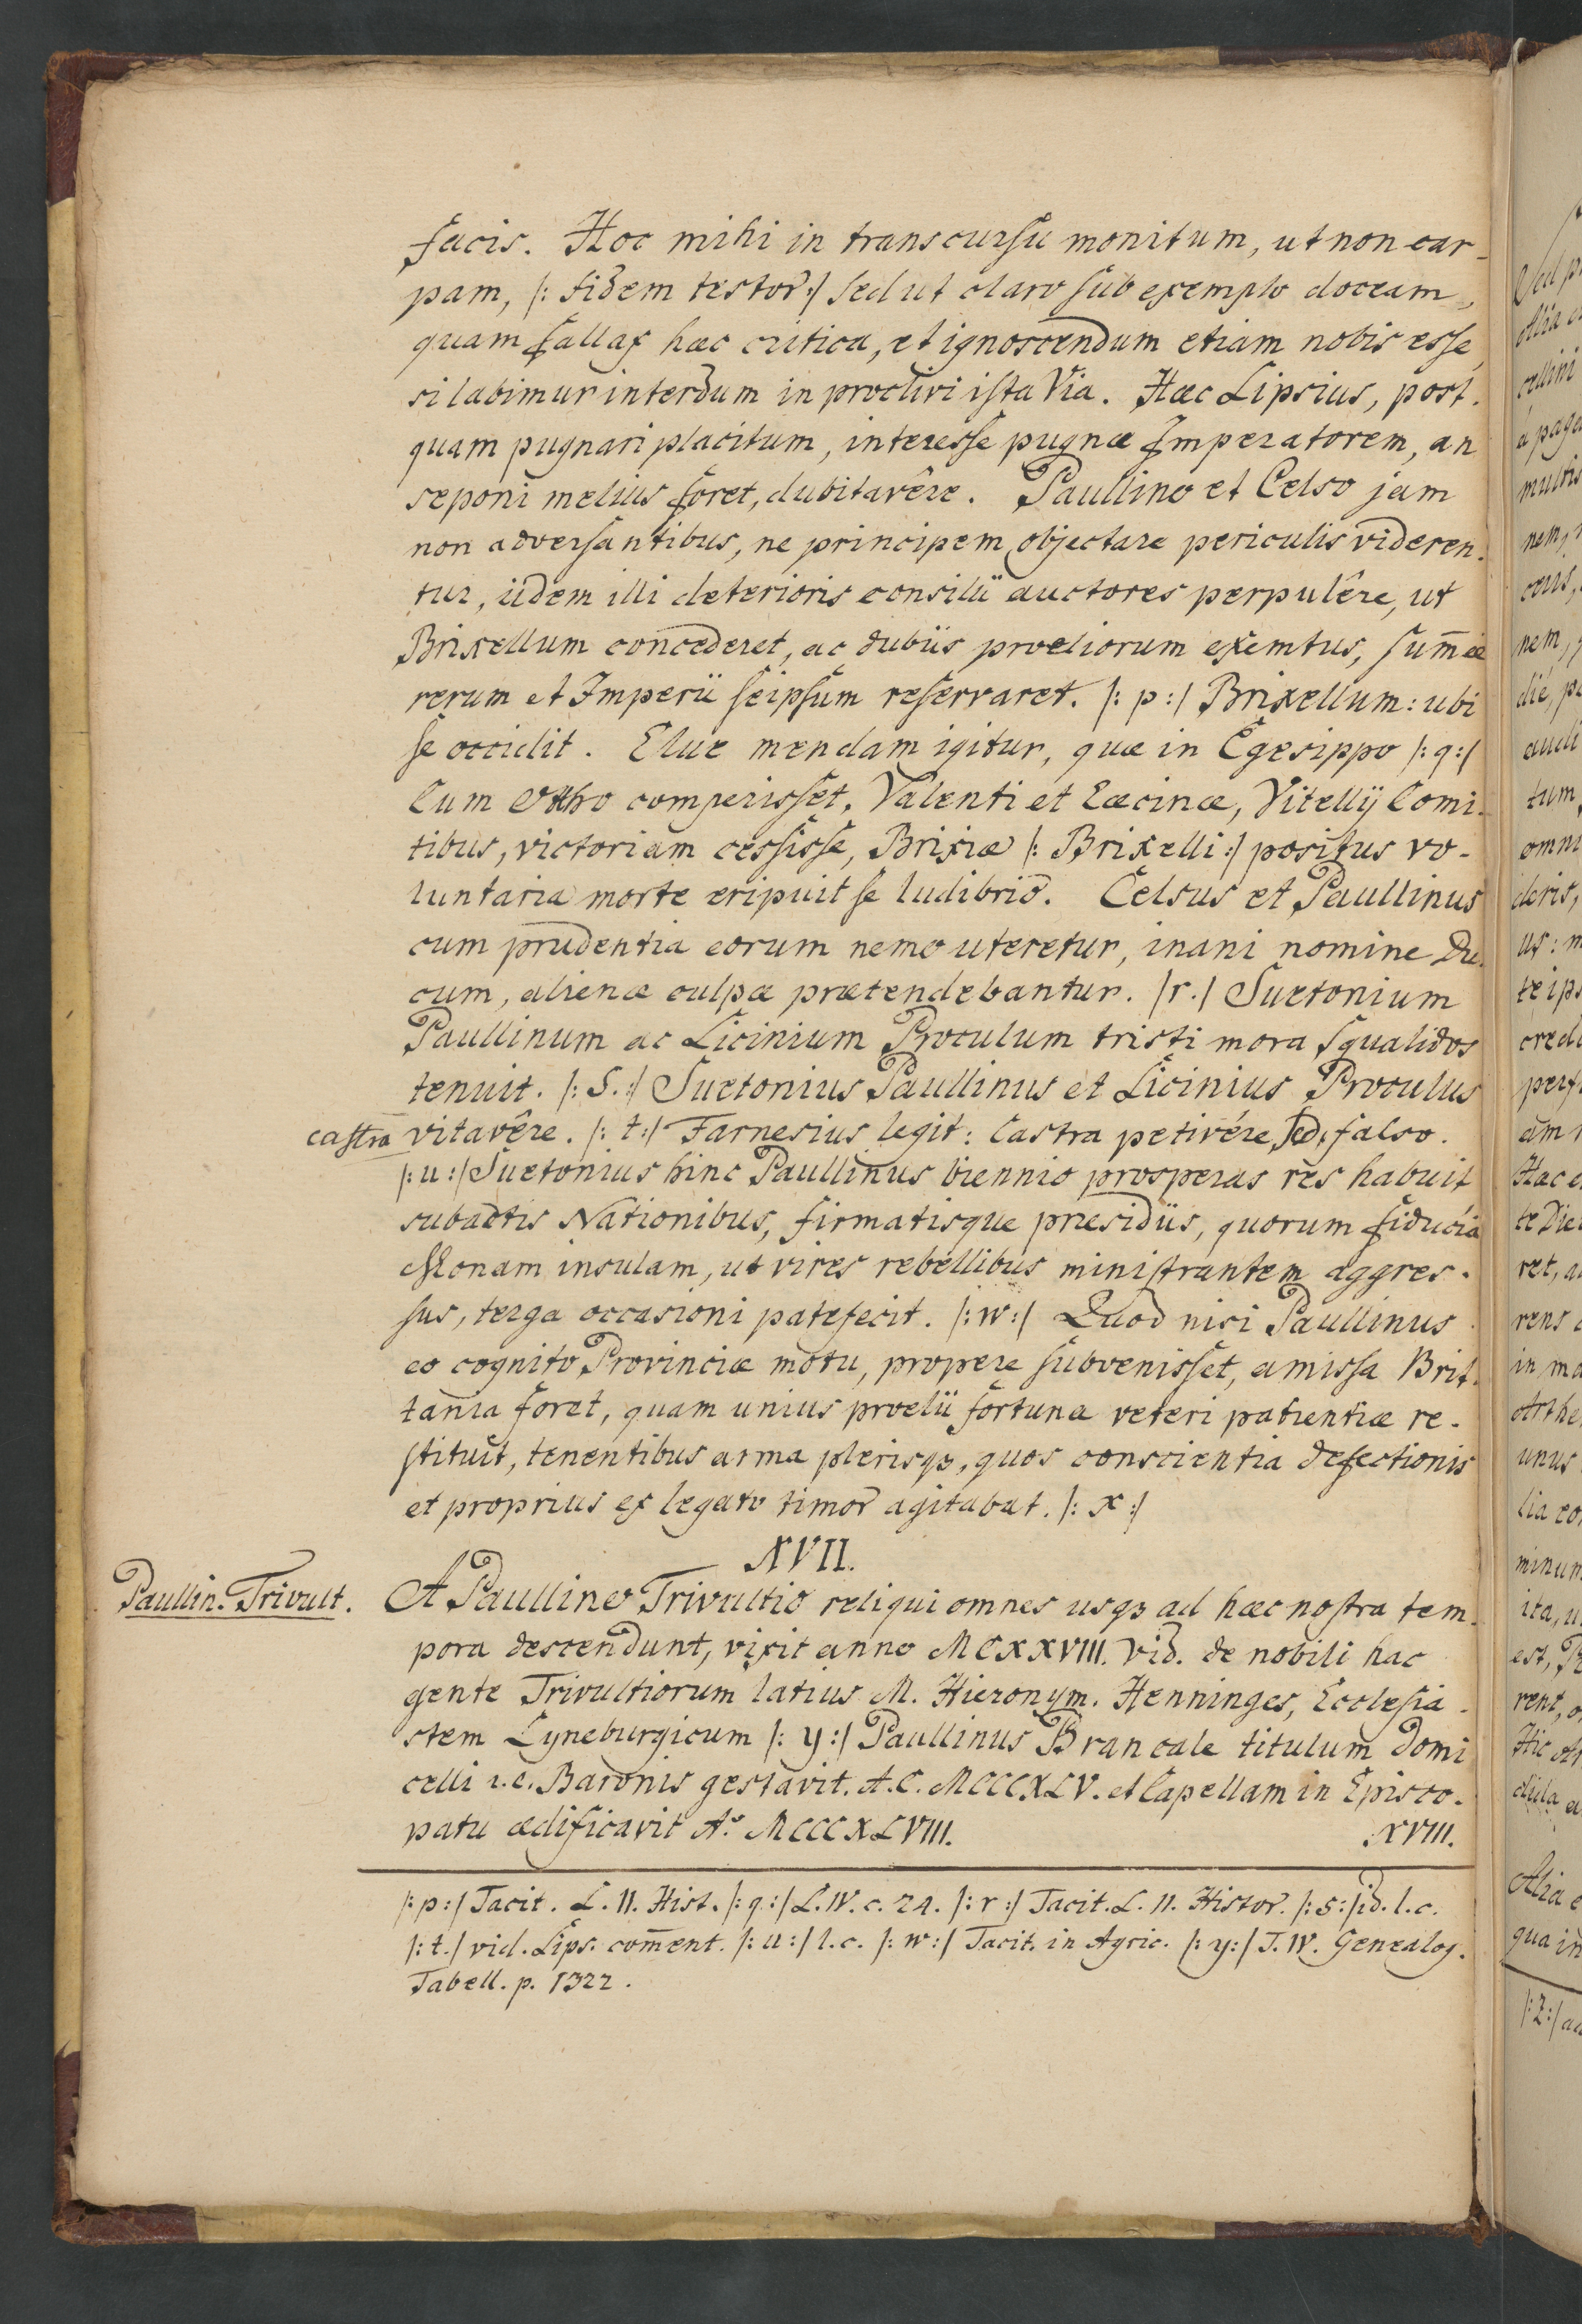 facis. Hoc mihi in transcursu monitum, ut non car-
pam, |: fidem testor :| sed ut claro sub exemplo doceam,
quam fallax hæc critica, et ignoscendum etiam nobis esse,
si labimur interdum in proclivi ista Via. Hæc Lipsius, post-
quam pugnari placitum, interesse pugnæ Imperatorem, an
seponi melius foret, dubitavêre. Paullino et Celso jam
non adversantibus, ne principem objectare periculis videren-
tur, iidem illi deterioris consilii auctores perpulêre, ut
Brixellum concederet, ac dubiis proeliorum exemtus, sum̄æ
rerum et Imperii seipsum reservaret. |: p :| Brixellum: ubi
se occidit. Elue mendam igitur, quæ in Egesippo |: q :|
Cum Otho comperisset, Valenti et Cæcinæ, Vitellij Comi-
tibus, victoriam cessisse, Brixiæ |: Brixelli :| positus vo-
luntaria morte eripuit se ludibrio. Celsus et Paullinus
cum prudentia eorum nemo uteretur, inani nomine Du-
cum, alienæ culpæ prætendebantur. |r.| Suetonium
Paullinum ac Licinium Proculum tristi mora squalidos
tenuit. |: S. :| Suetonius Paullinus et Licinius Proculus
castra vitavêre. |: t :| Farnesius legit: Castra petivére, sed falso.
|: u :| Suetonius hinc Paullinus biennio prosperas res habuit
subactis Nationibus, firmatisque præsidiis, quorum fiducia
Monam insulam, ut vires rebellibus ministrantem aggres-
sus, terga occasioni patefecit. |: w :| Quod nisi Paullinus
eo cognito Provinciæ motu, propere subvenisset, amissa Brit-
tania foret, quam unius proelii fortuna veteri patientiæ re-
stituit, tenentibus arma plerisqȝ, quos conscientia defectionis
et proprius ex legato timor agitabat. |: x :|
XVII.
Paullin. Trivult.
A Paullino Trivultio reliqui omnes usqȝ ad hæc nostra tem-
pora descendunt, vixit anno MCXXVIII. Vid. de nobili hac
gente Trivultiorum latius M. Hieronym. Henninges, Ecclesia-
stem Lyneburgicum |: y :| Paullinus Brancale titulum Domi
celli i.e. Baronis gestavit. A.C. MCCCXLV. et Capellam in Episco-
patu ædificavit A.º MCCCXLVIII.
XVIII.
|: p :| Tacit. L. II. Hist. |: q :| L. IV. c. 24. |: r :| Tacit. L. II. Histor. |: s :| id. l. c.
|: t. | vid. Lips. com̄ent. |: u :| l. c. |: w :| Tacit. in Agric. |: y :| T. IV. Genealog.
Tabell. p. 1322.